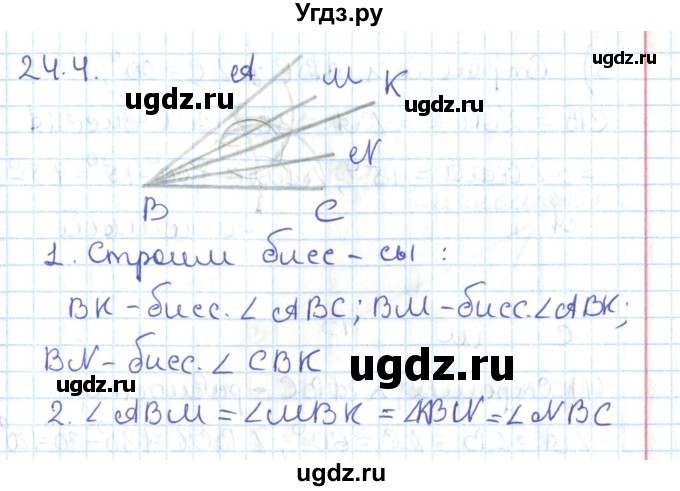 Угдз.ру
24.4.
A M K
ugdz.ru ugdz.ru
N
B C
ugdz.ru
1. Строим бисс-сы:
BK - бисс. ∠ABC; BM - бисс. ∠ABK;
BN - бисс. ∠CBK
ugdz.ru ugdz.ru
2. ∠ABM = ∠MBK = ∠KBN = ∠NBC
ugdz.ru